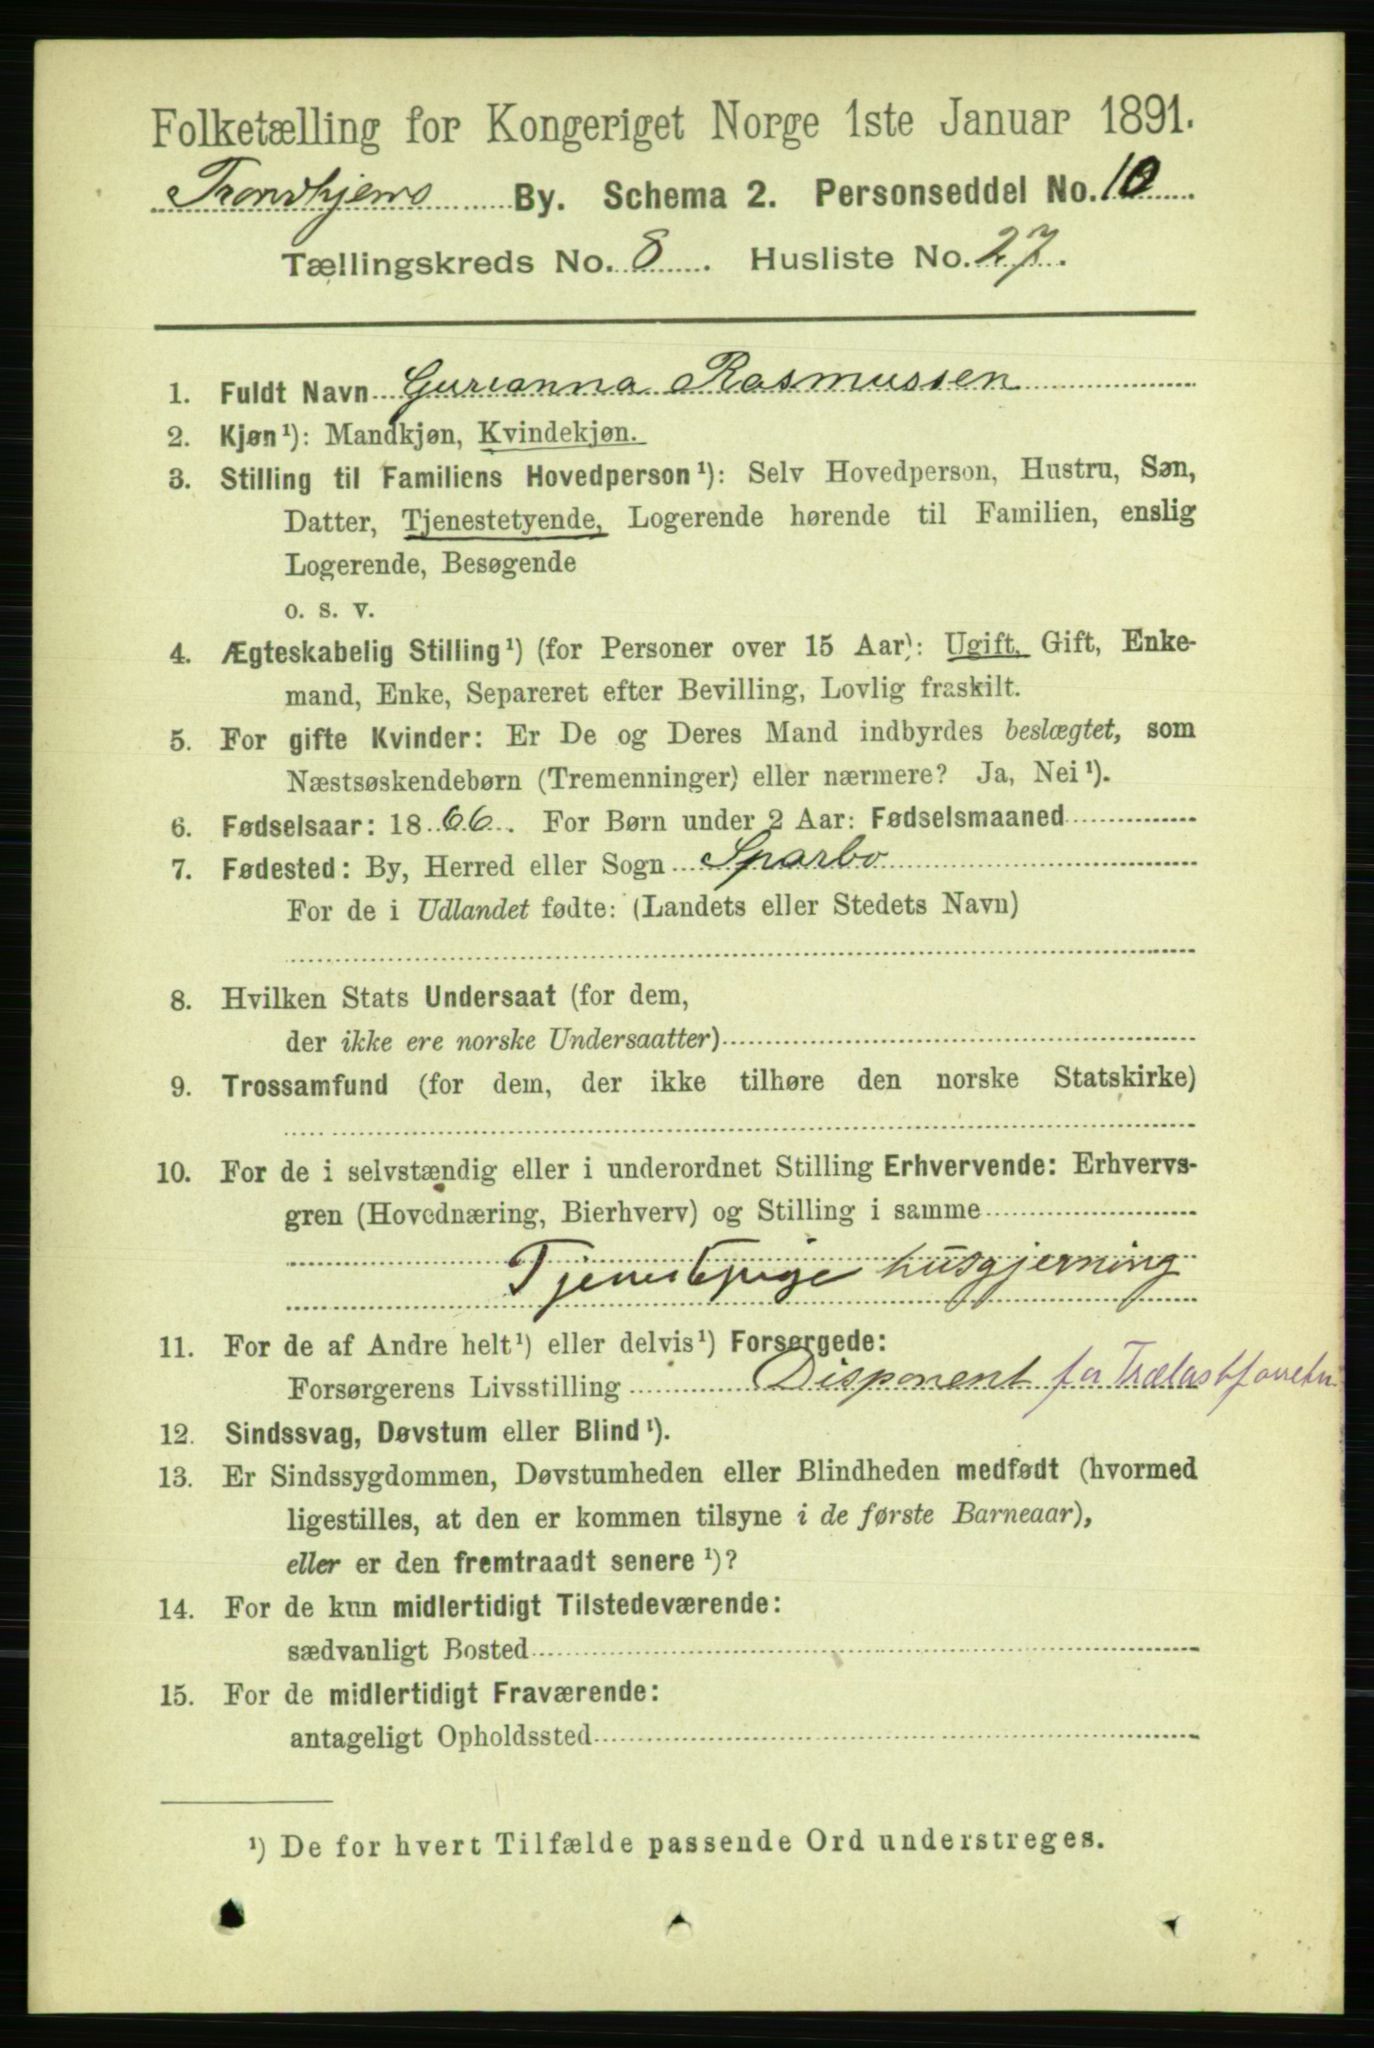 Folketælling for Kongeriget Norge 1ste Januar 1891.
Trondhjems By. Schema 2. Personseddel No. 10
Tællingskreds No. 8. Husliste No. 27.
1. Fuldt Navn Gurianna Rasmussen
2. Kjøn¹): Mandkjøn, Kvindekjøn.
3. Stilling til Familiens Hovedperson¹): Selv Hovedperson, Hustru, Søn,
Datter, Tjenestetyende, Logerende hørende til Familien, enslig
Logerende, Besøgende
o. s. v.
4. Ægteskabelig Stilling¹) (for Personer over 15 Aar): Ugift, Gift, Enke-
mand, Enke, Separeret efter Bevilling, Lovlig fraskilt.
5. For gifte Kvinder: Er De og Deres Mand indbyrdes beslægtet, som
Næstsøskendebørn (Tremenninger) eller nærmere? Ja, Nei¹).
6. Fødselsaar: 1866. For Børn under 2 Aar: Fødselsmaaned
7. Fødested: By, Herred eller Sogn Sparbo
For de i Udlandet fødte: (Landets eller Stedets Navn)
8. Hvilken Stats Undersaat (for dem,
der ikke ere norske Undersaatter)
9. Trossamfund (for dem, der ikke tilhøre den norske Statskirke)
10. For de i selvstændig eller i underordnet Stilling Erhvervende: Erhvervs-
gren (Hovednæring, Bierhverv) og Stilling i samme
Tjenestpige husgjerning
11. For de af Andre helt¹) eller delvis¹) Forsørgede:
Forsørgerens Livsstilling Disponent for Trælastforretn
12. Sindssvag, Døvstum eller Blind¹).
13. Er Sindssygdommen, Døvstumheden eller Blindheden medfødt (hvormed
ligestilles, at den er kommen tilsyne i de første Barneaar),
eller er den fremtraadt senere¹)?
14. For de kun midlertidigt Tilstedeværende:
sædvanligt Bosted
15. For de midlertidigt Fraværende:
antageligt Opholdssted
¹) De for hvert Tilfælde passende Ord understreges.